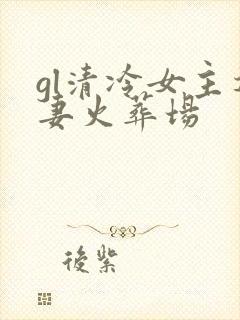 gl清冷女主
妻火葬場
後紫